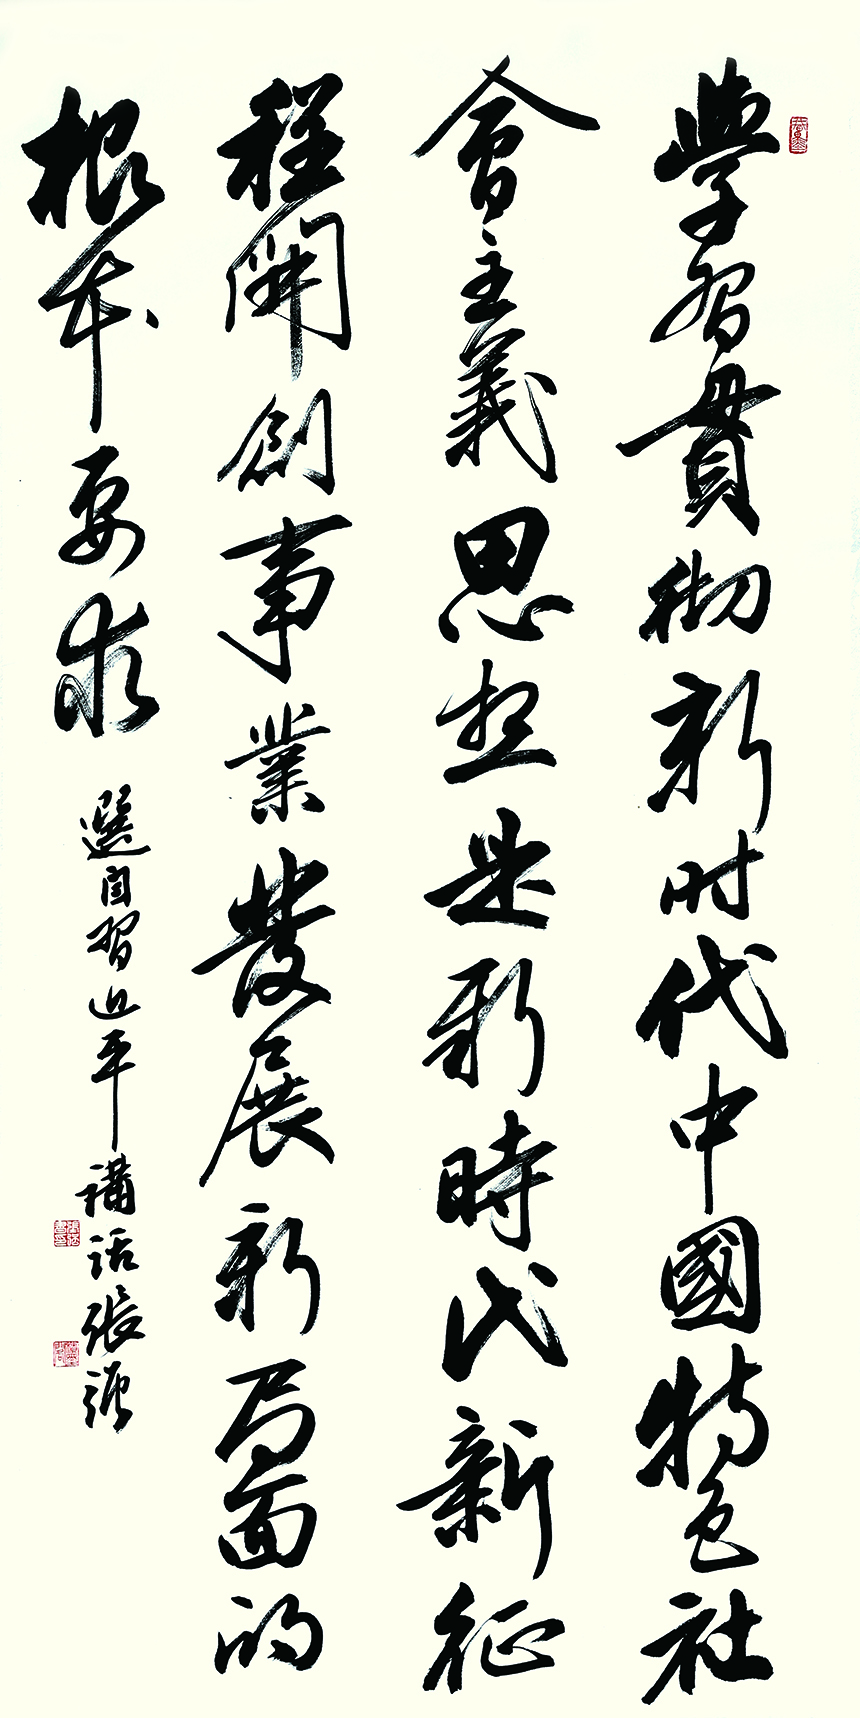 學習貫彻新时代中國特色社
會主義思想是新時代新征
程開創事業發展新局面的
根本要求
選自習近平講話張